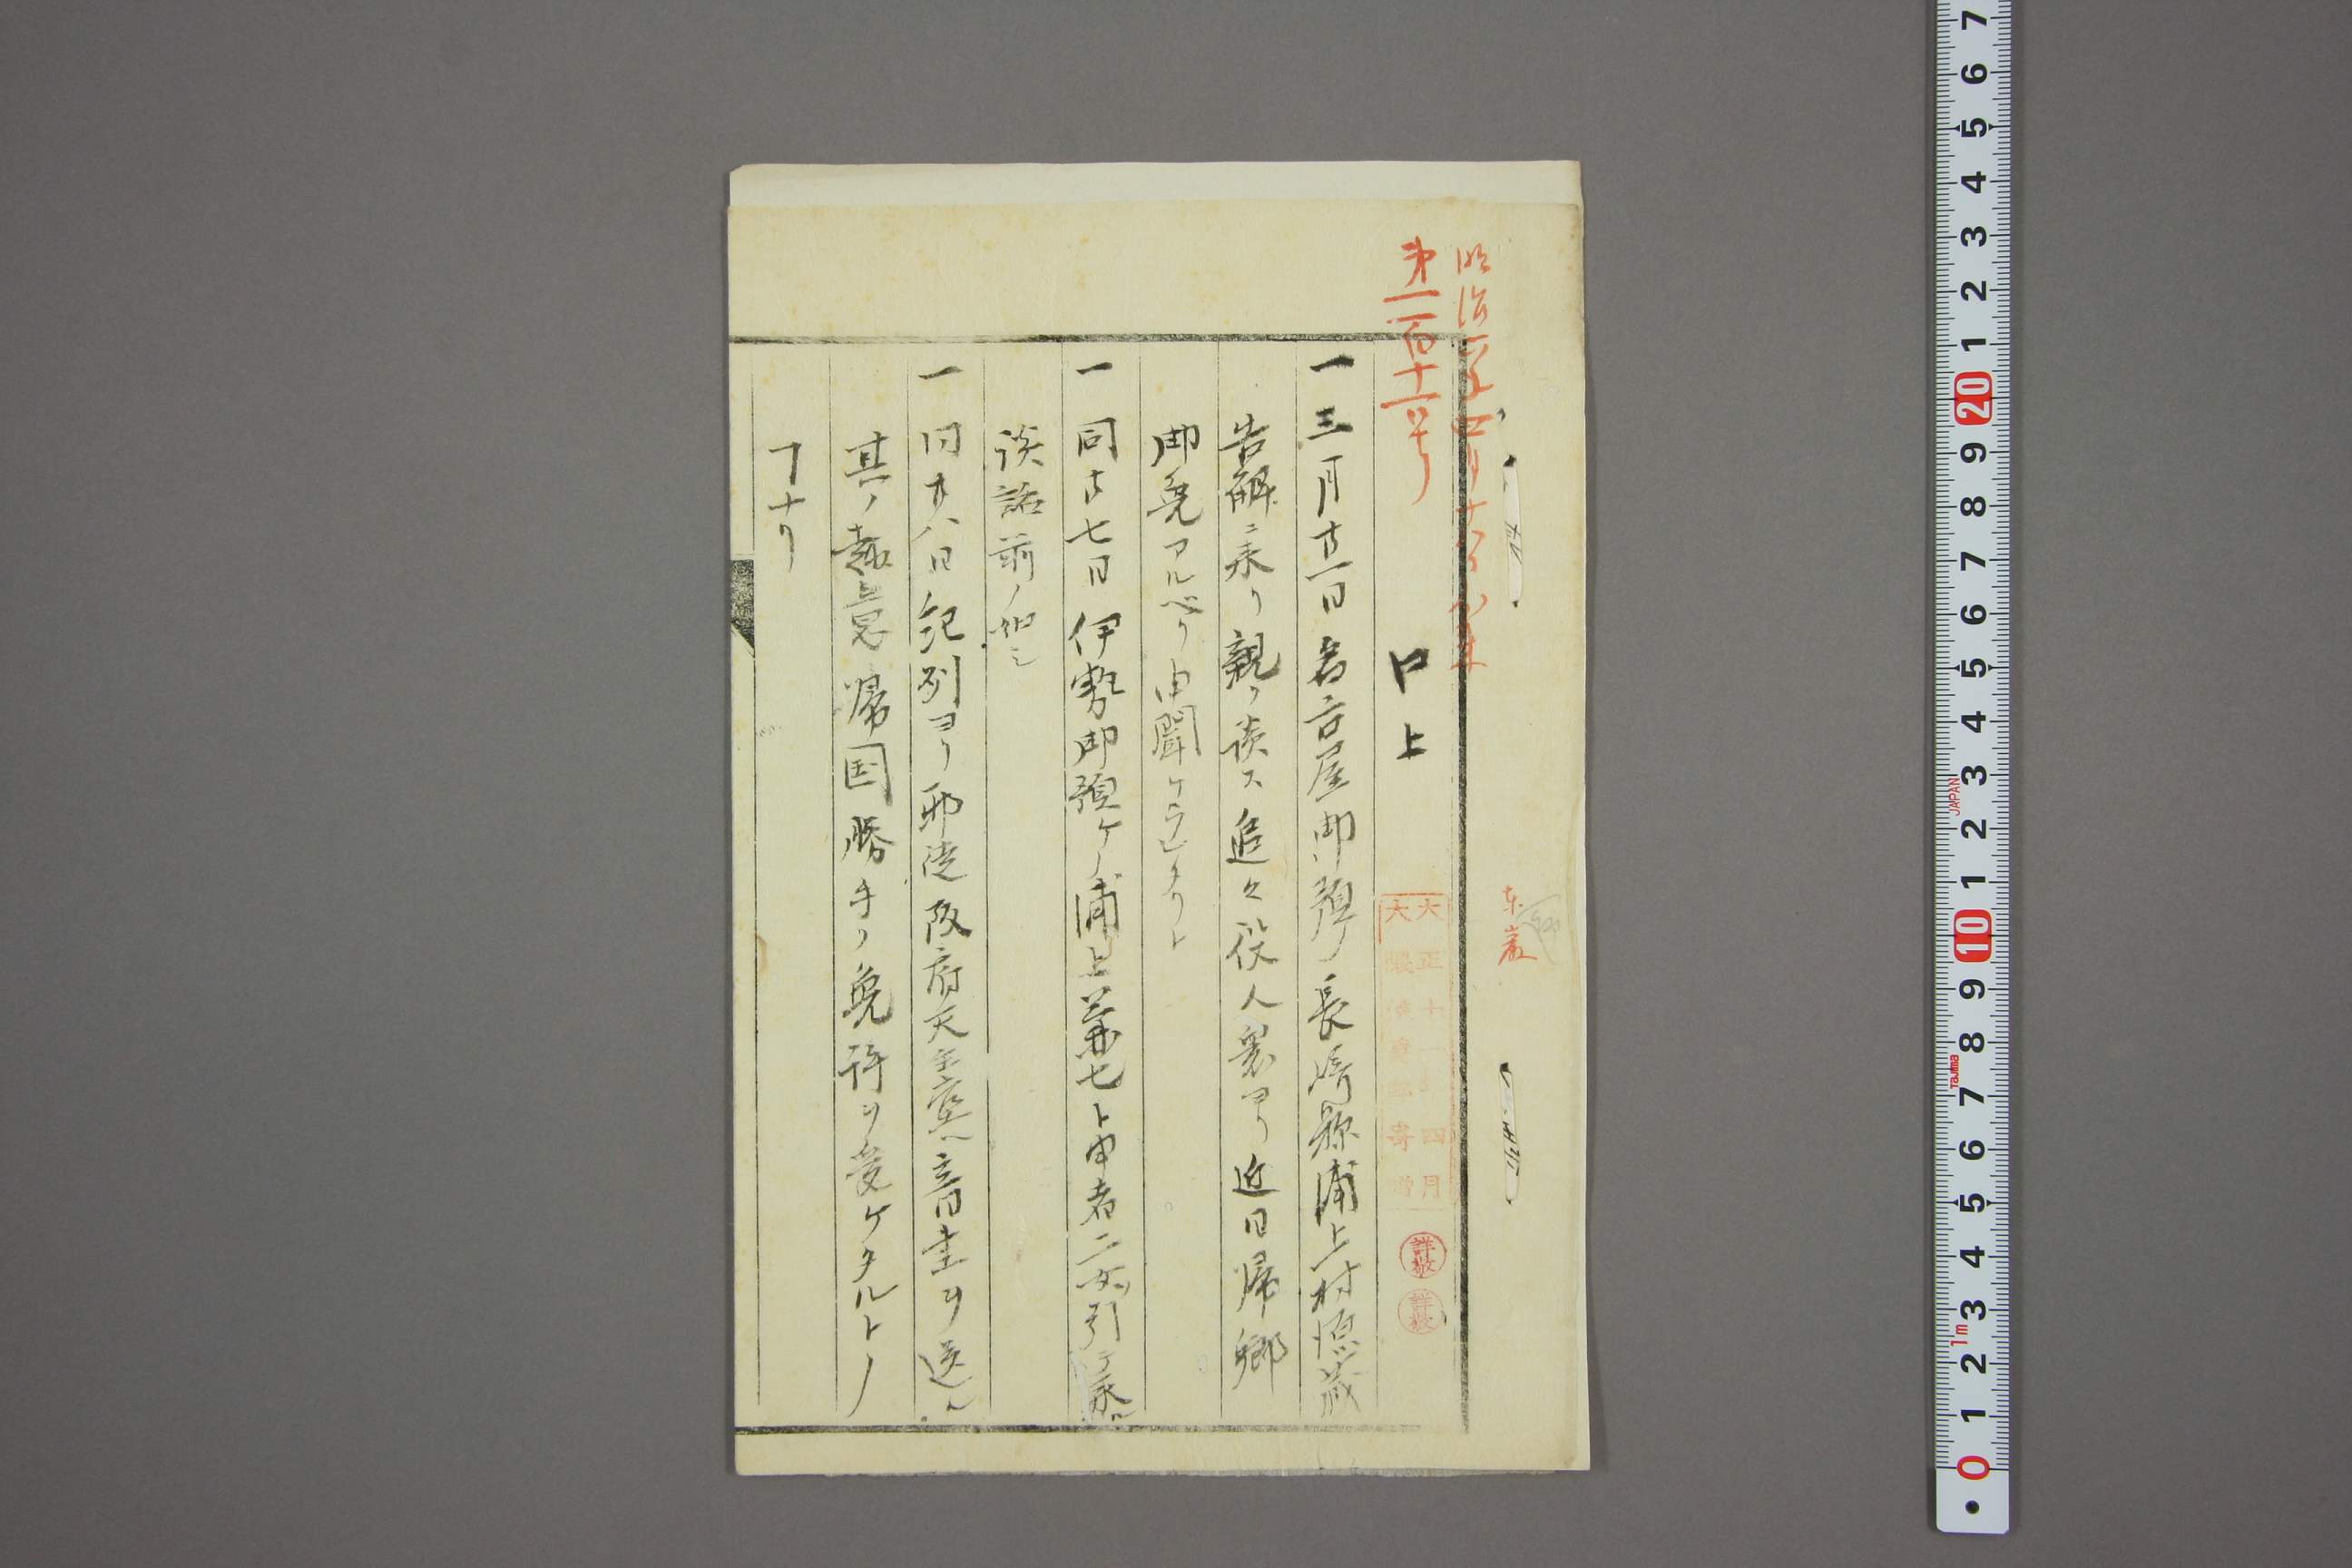 明治六年四月十六日
第二百十一号
東崖
口上
大正十一年四月
大隈侯爵家寄贈
一三月廿一日名古屋御預ケノ長崎縣浦上村惣蔵
告解ニ来リ親ク談ス追々役人衆ヨリ近日帰郷
御免アルベク申聞ケラレタリト
一同廿七日伊勢御預ケノ浦上兼七ト申者二女引テ来ル
談話前ノ如シ
一同廿八日紀州ヨリ邪徒阪府天主堂ヘ音書ヲ送ル
其ノ趣意帰国勝手ノ免許ヲ受ケタルトノ
ヿナリ